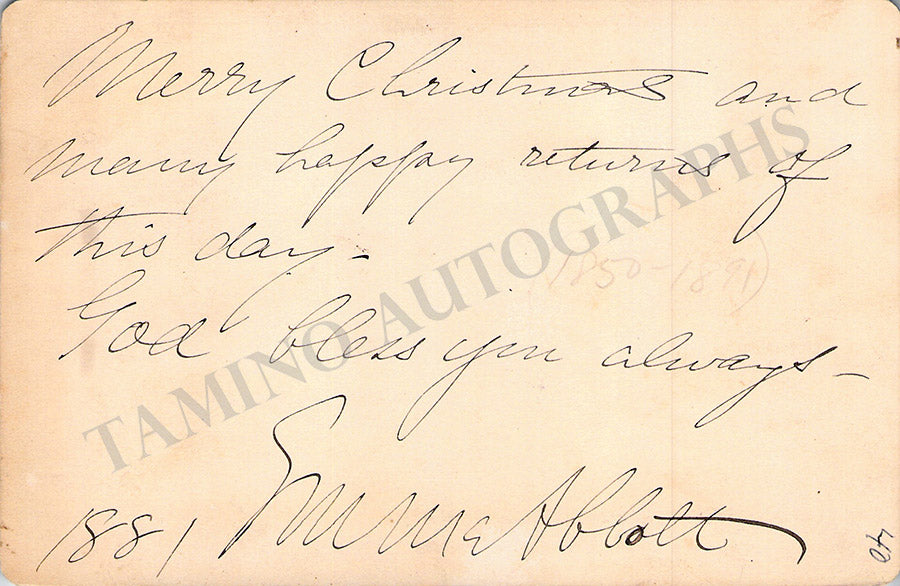 Merry Christmas and
many happy returns of
this day -
God bless you always -
1881 Emma Abbott
1850-1891)
TAMINO AUTOGRAPHS
40